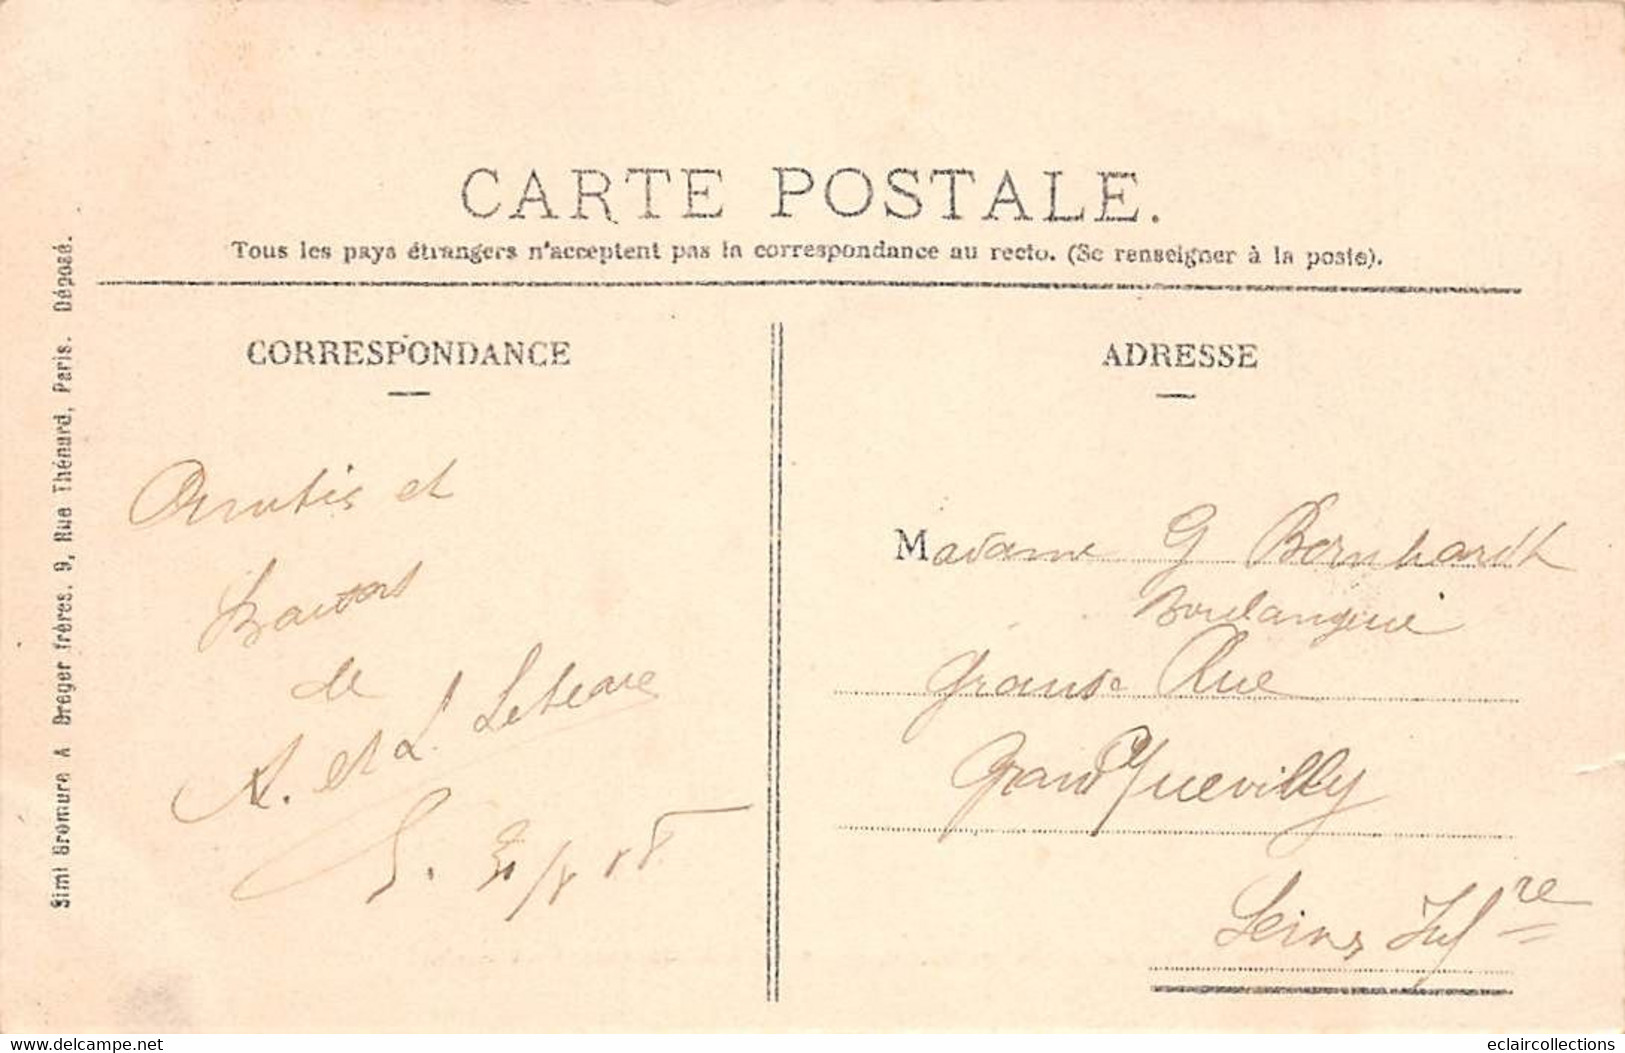 CARTE POSTALE.
Tous les pays étrangers n'acceptent pas la correspondance au recto. (Se renseigner à la poste).
CORRESPONDANCE
Amitiés et
de
A. et L.
ADRESSE
Madame G Bernhardt
Boulangerie
Grande Rue
Grand Quevilly
Seine Infre
Simi Bromure A Breger frères. 9, Rue Thénard, Paris. Déposé.
delcampe.net
eclaircollections